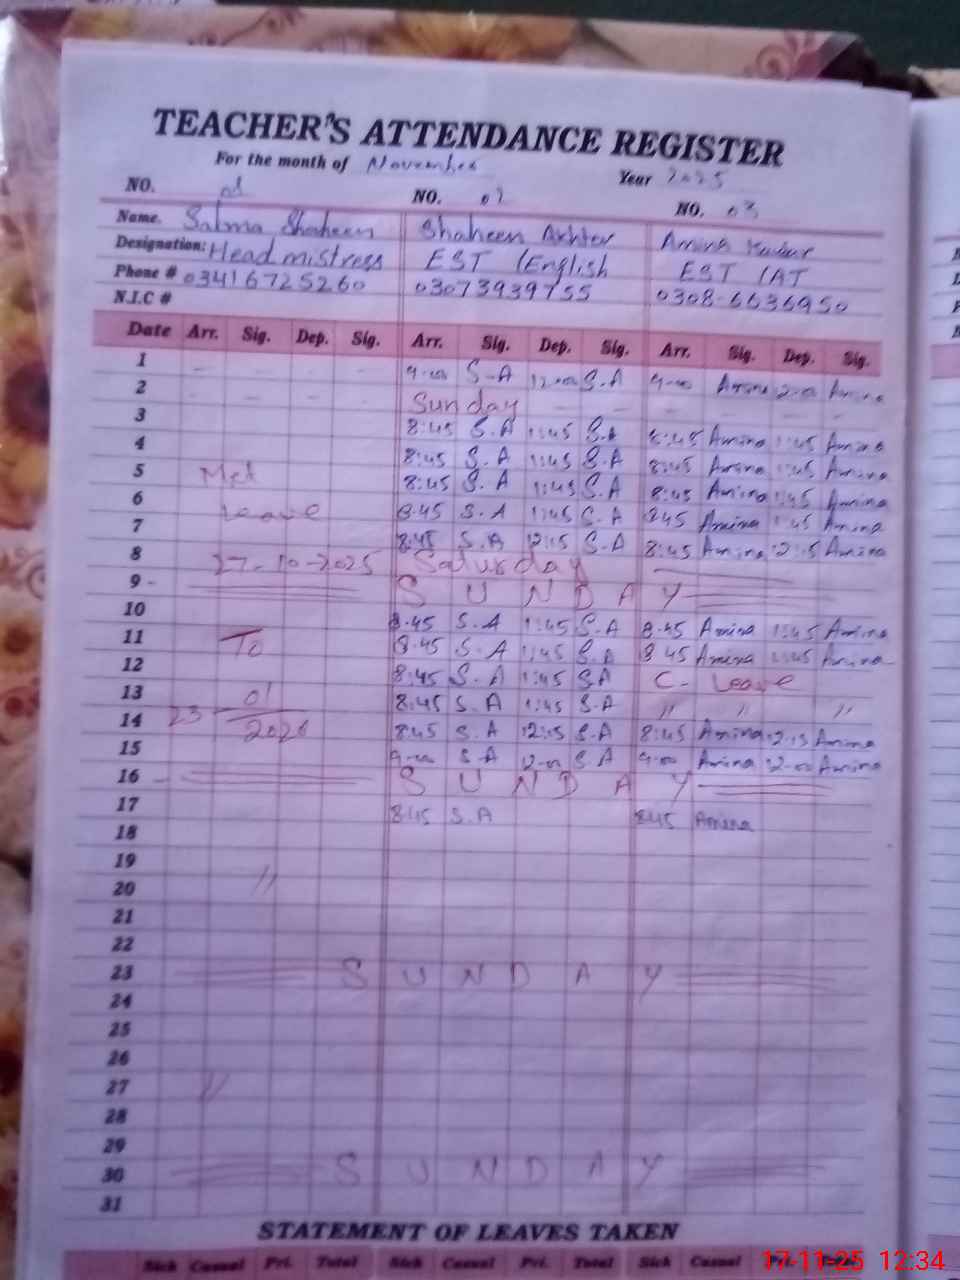 TEACHER'S ATTENDANCE REGISTER
For the month of November Year 2025
NO. 01 NO. 02 NO. 03
Name. Salma Shaheen Shaheen Akhter Amina
Designation: Headmistress EST (English EST (AT
Phone # 03416725260 03073939755 0308-6636950
N.I.C #
Date Arr. Sig. Dep. Sig. Arr. Sig. Dep. Sig. Arr. Sig. Dep. Sig.
1 - - - - 9-00 S-A 12-00 S.A 9-00 Amina 12-00 Amina
2 - - - - Sunday - - - - - -
3 8:45 S.A 1:45 S.A 8:45 Amina 1:45 Amina
4 8:45 S.A 1:45 S.A 8:45 Amina 1:45 Amina
5 Met 8:45 S.A 1:45 S.A 8:45 Amina 1:45 Amina
6 Leave 8:45 S.A 1:45 S.A 8:45 Amina 1:45 Amina
7 8:45 S.A 12:15 S.A 8:45 Amina 12:15 Amina
8 27-10-2025 Saturday
9 - SUNDAY
10 8:45 S.A 1:45 S.A 8:45 Amina 1:45 Amina
11 To 8:45 S.A 1:45 S.A 8:45 Amina 1:45 Amina
12 8:45 S.A 1:45 S.A C- Leave
13 01 8:45 S.A 1:45 S.A " " "
14 23 2026 8:45 S.A 12:15 S.A 8:45 Amina 12:15 Amina
15 9-00 S.A 12-00 S.A 9-00 Amina 12-00 Amina
16 - SUNDAY
17 8:45 S.A 8:45 Amina
18
19
20 "
21
22
23 SUNDAY
24
25
26
27 "
28
29
30 SUNDAY
31
STATEMENT OF LEAVES TAKEN
Sick Casual Pri. Total Sick Casual Pri. Total Sick Casual Pri. Total
17-11-25 12:34